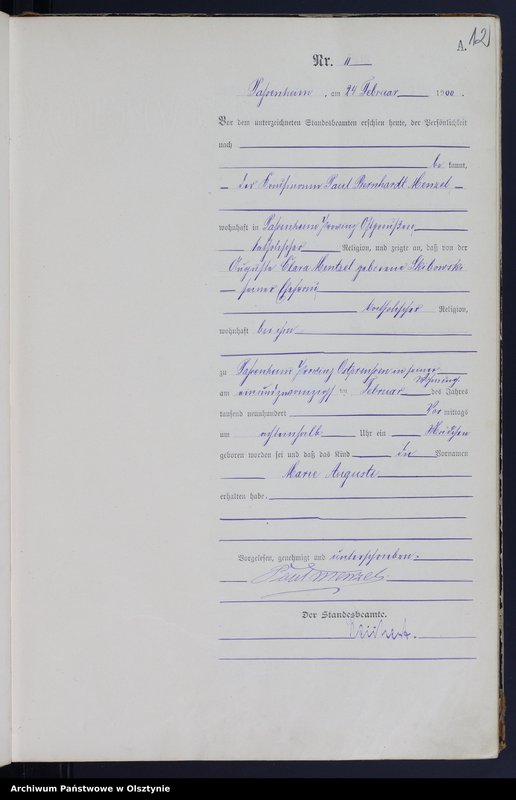 A. 12
Nr. 11
Passenheim, am 24 Februar 1900.
Vor dem unterzeichneten Standesbeamten erschien heute, der Persönlichkeit
nach
be kannt,
der Paul Bernhardt Menzel
wohnhaft in Passenheim Provinz Ostpreußen
katholischer Religion, und zeigte an, daß von der
Auguste Clara Mentzel geborene Skibowski
seiner Ehefrau
katholischer Religion,
wohnhaft bei ihm
zu Passenheim Provinz Ostpreussen in seiner
Wohnung
am einundzwanzigsten Februar des Jahres
tausend neunhundert Vor mittags
um Uhr ein Mädchen
geboren worden sei und daß das Kind die Vornamen
Marie Auguste
erhalten habe.
Vorgelesen, genehmigt und unterschrieben.
Paul Menzel
Der Standesbeamte.
Archiwum Państwowe w Olsztynie